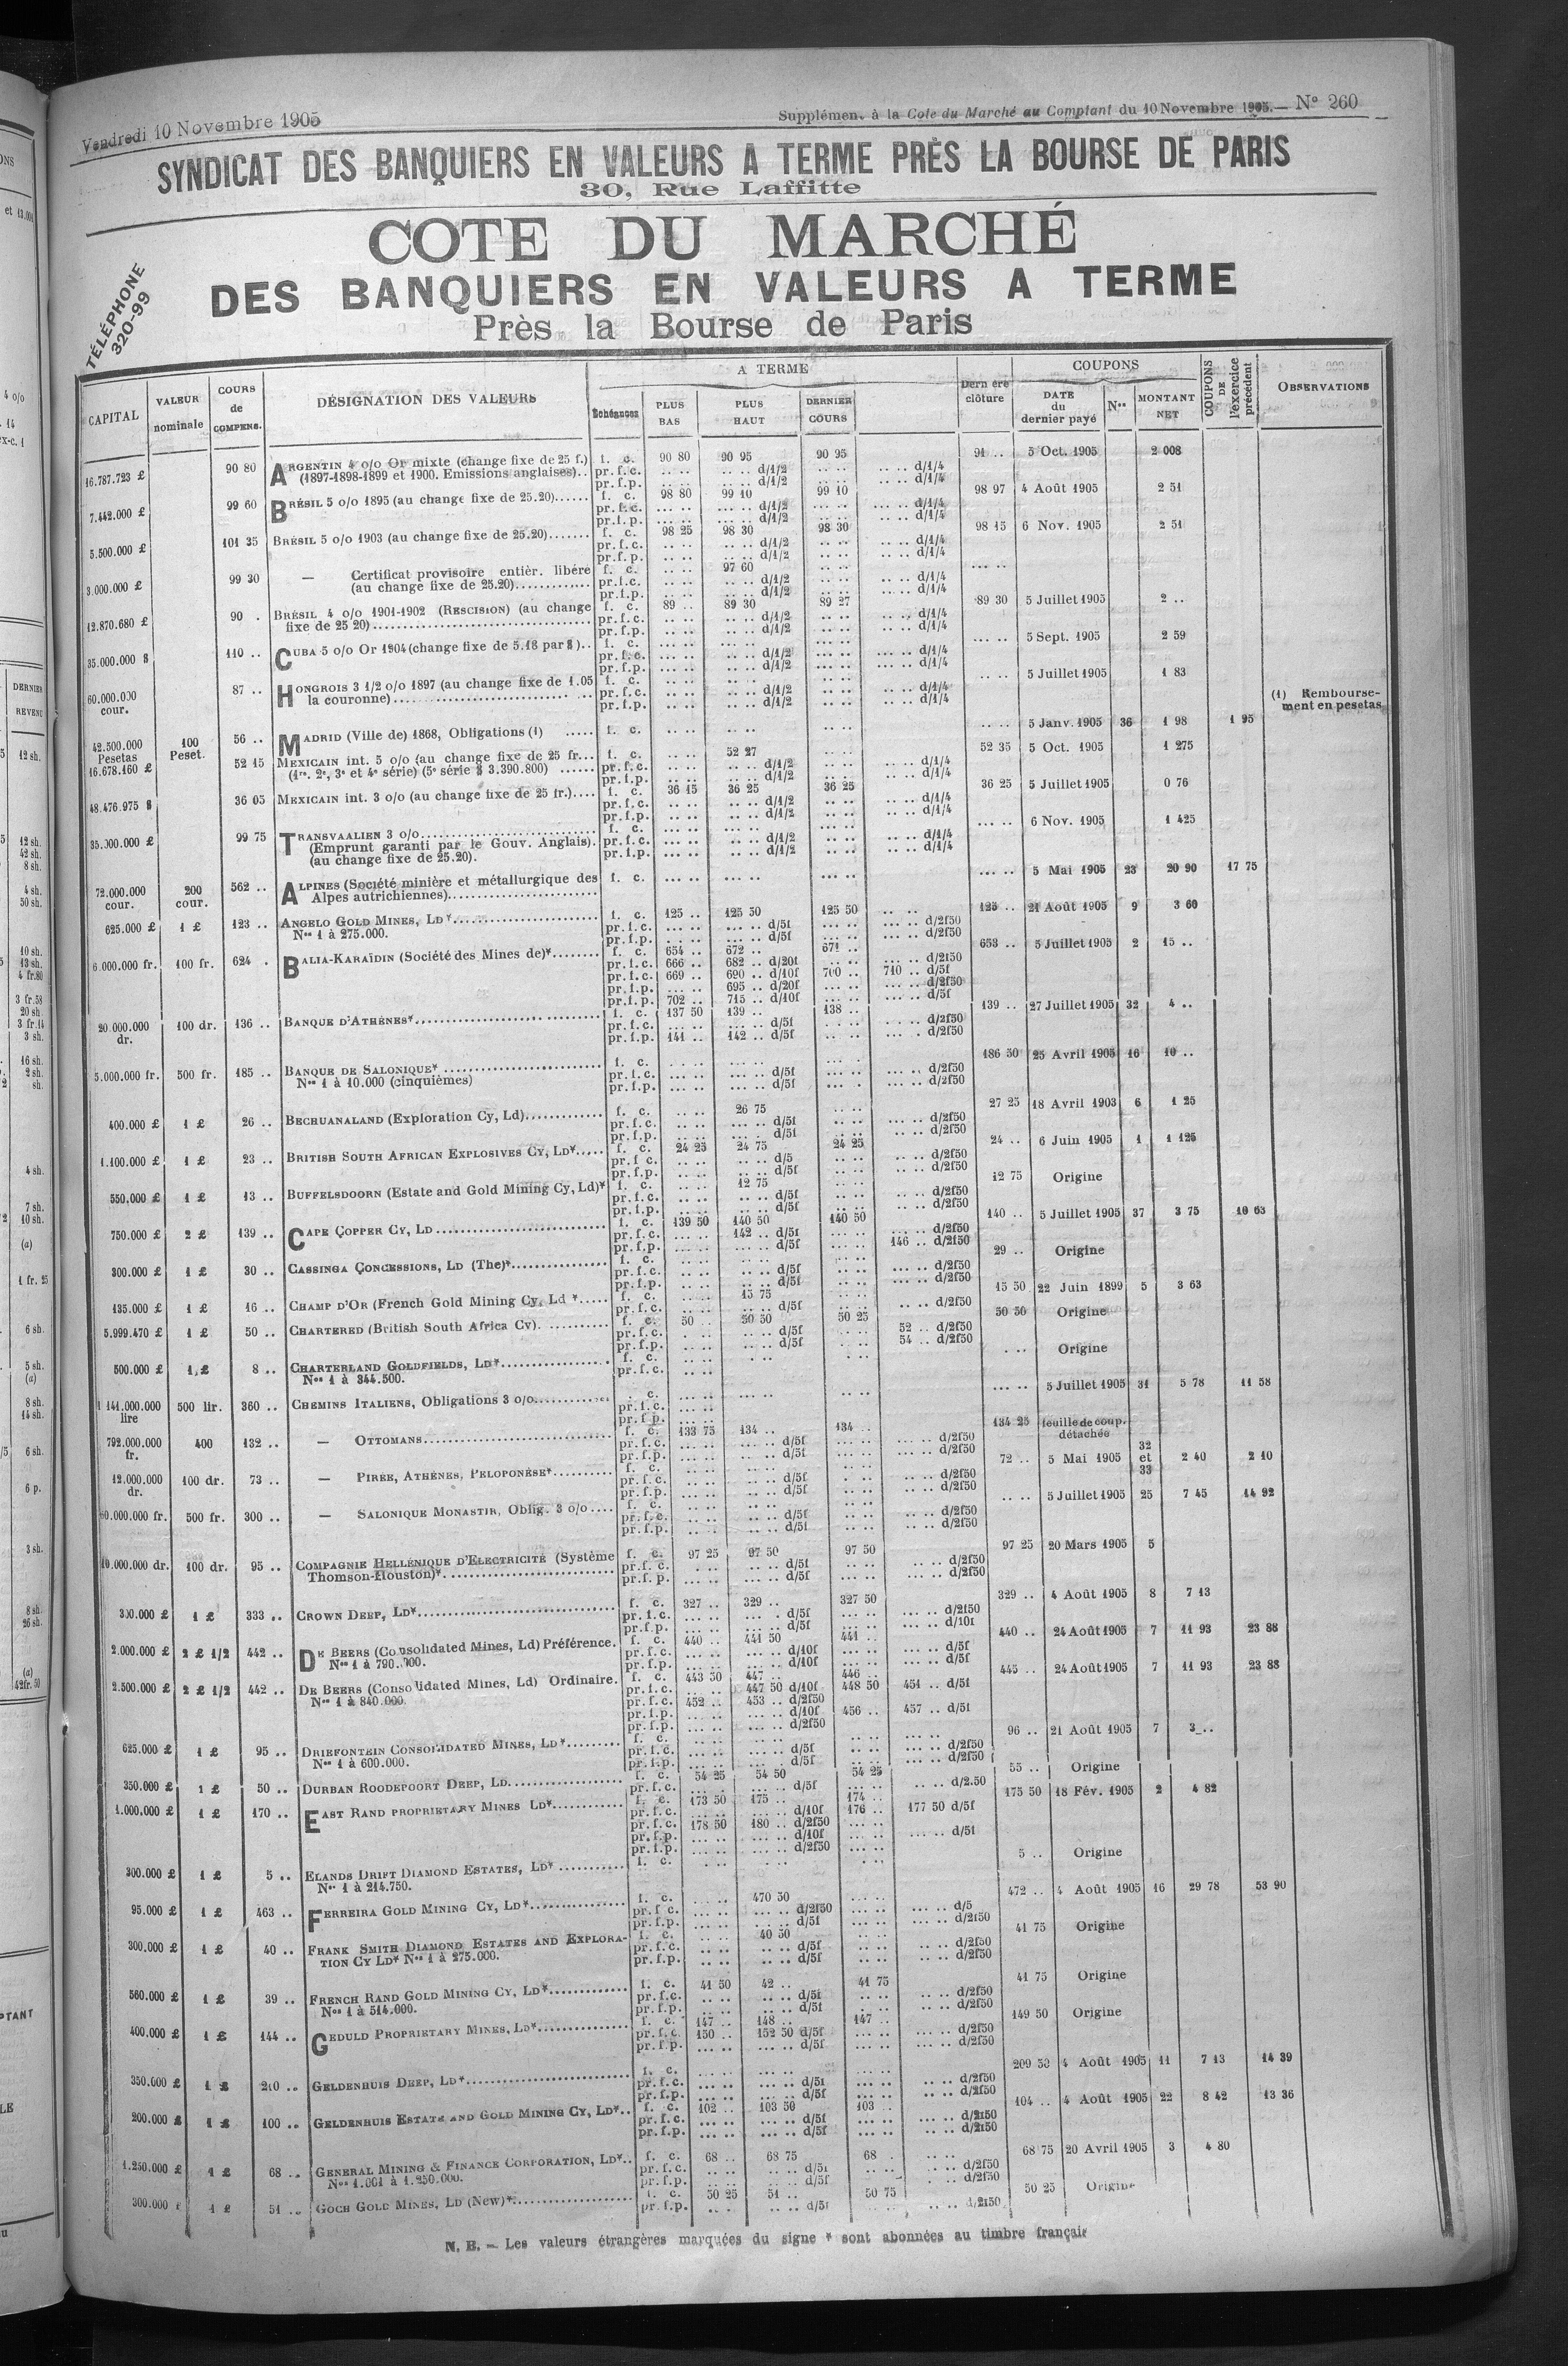 Vendredi 10 Novembre 1905
Supplément à la Cote du Marché au Comptant du 10 Novembre 1905. — N° 260
SYNDICAT DES BANQUIERS EN VALEURS A TERME PRÈS LA BOURSE DE PARIS
30, Rue Laffitte
COTE DU MARCHÉ
DES BANQUIERS EN VALEURS A TERME
Près la Bourse de Paris
TÉLÉPHONE
320-99
CAPITAL | VALEUR nominale | COURS de COMPENS. | DÉSIGNATION DES VALEURS | A TERME | Échéances | PLUS BAS | PLUS HAUT | DERNIER COURS | Dernère clôture | COUPONS | DATE du dernier payé | Nos | MONTANT NET | COUPONS DE l'exercice précédent | OBSERVATIONS
16.787.723 £ 90 80 ARGENTIN 4 o/o Or mixte (change fixe de 25 f.) f. c. 90 80 90 95 90 95 91 .. 5 Oct. 1905 2 008
(1897-1898-1899 et 1900. Emissions anglaises).. pr.f.c. .. .. .. .. d/1/2 .. .. .. .. d/1/4
pr.f.p. .. .. d/1/2 .. .. d/1/4
7.442.000 £ 99 60 BRÉSIL 5 o/o 1895 (au change fixe de 25.20)...... f. c. 98 80 99 10 99 10 98 97 4 Août 1905 2 51
pr.f.c. d/1/2 d/1/4
pr.f.p. d/1/2 d/1/4
5.500.000 £ 101 35 BRÉSIL 5 o/o 1903 (au change fixe de 25.20)....... f. c. 98 25 98 30 98 30 98 15 6 Nov. 1905 2 51
pr.f.c. d/1/2 d/1/4
pr.f.p. d/1/2 d/1/4
3.000.000 £ 99 30 — Certificat provisoire entièr. libéré f. c. .. .. 97 60 .. .. ... ..
(au change fixe de 25.20)............. pr.f.c. d/1/2 d/1/4
pr.f.p. d/1/2 d/1/4
12.870.680 £ 90 . BRÉSIL 4 o/o 1901-1902 (RESCISION) (au change f. c. 89 .. 89 30 89 27 89 30 5 Juillet 1905 2 ..
fixe de 25 20)................ pr.f.c. d/1/2 d/1/4
pr.f.p. d/1/2 d/1/4
35.000.000 $ 110 .. CUBA 5 o/o Or 1904 (change fixe de 5.18 par $).. f. c. ... .. 5 Sept. 1905 2 59
pr.f.c. d/1/2 d/1/4
pr.f.p. d/1/2 d/1/4
60.000.000 cour. 87 .. HONGROIS 3 1/2 o/o 1897 (au change fixe de 1.05 f. c. .. .. 5 Juillet 1905 1 83
la couronne)................ pr.f.c. d/1/2 d/1/4
pr.f.p. d/1/2 d/1/4
(1) Rembourse-
ment en pesetas
42.500.000 Pesetas 100 Peset. 56 .. MADRID (Ville de) 1868, Obligations (1) ..... f. c. .. .. 5 Janv. 1905 36 1 98 1 95
16.678.160 £ 52 15 MEXICAIN int. 5 o/o (au change fixe de 25 fr... f. c. .. .. 52 27 .. .. 52 35 5 Oct. 1905 1 275
(1re. 2e, 3e et 4e série) (5e série $ 3.390.800) ...... pr.f.c. d/1/2 d/1/4
pr.f.p. d/1/2 d/1/4
48.476.975 $ 36 05 MEXICAIN int. 3 o/o (au change fixe de 25 fr.).... f. c. 36 15 36 25 36 25 36 25 5 Juillet 1905 0 76
pr.f.c. d/1/2 d/1/4
pr.f.p. d/1/2 d/1/4
35.000.000 £ 99 75 TRANSVAALIEN 3 o/o................ f. c. ... .. 6 Nov. 1905 1 425
(Emprunt garanti par le Gouv. Anglais). pr.f.c. d/1/2 d/1/4
(au change fixe de 25.20). pr.f.p. d/1/2 d/1/4
72.000.000 cour. 200 cour. 562 .. ALPINES (Société minière et métallurgique des f. c. ... .. 5 Mai 1905 23 20 90 17 75
Alpes autrichiennes)................
625.000 £ 1 £ 123 .. ANGELO GOLD MINES, LD*................ f. c. 125 .. 125 50 125 50 125 .. 21 Août 1905 9 3 60
Nos 1 à 275.000. pr.f.c. d/5f d/2f50
pr.f.p. d/5f d/2f50
6.000.000 fr. 100 fr. 624 . BALIA-KARAÏDIN (Société des Mines de)*........ f. c. 654 .. 672 .. 671 .. 653 .. 5 Juillet 1905 2 15 ..
pr.f.c. 666 .. 682 .. d/20f ... .. d/2f50
pr.f.c. 669 .. 690 .. d/10f 700 .. 710 .. d/5f
pr.f.p. ... .. 695 .. d/20f ... .. d/2f50
pr.f.p. 702 .. 715 .. d/10f ... .. d/5f
20.000.000 dr. 100 dr. 136 .. BANQUE D'ATHÈNES*................ f. c. 137 50 139 .. 138 .. 139 .. 27 Juillet 1905 32 4 ..
pr.f.c. d/5f d/2f50
pr.f.p. 141 .. 142 .. d/5f d/2f50
5.000.000 fr. 500 fr. 185 .. BANQUE DE SALONIQUE*................ f. c. 186 50 25 Avril 1905 16 10 ..
Nos 1 à 10.000 (cinquièmes) pr.f.c. d/5f d/2f50
pr.f.p. d/5f d/2f50
400.000 £ 1 £ 26 .. BECHUANALAND (Exploration Cy, Ld)............. f. c. .. .. 26 75 .. .. 27 25 18 Avril 1903 6 1 25
pr.f.c. d/5f d/2f50
pr.f.p. d/5f d/2f50
1.100.000 £ 1 £ 23 .. BRITISH SOUTH AFRICAN EXPLOSIVES CY, LD*..... f. c. 24 25 24 75 24 25 24 .. 6 Juin 1905 1 1 125
pr.f.c. d/5 d/2f50
pr.f.p. d/5f d/2f50
550,000 £ 1 £ 13 .. BUFFELSDOORN (Estate and Gold Mining Cy, Ld)* f. c. .. .. 12 75 .. .. 12 75 Origine
pr.f.c. d/5f d/2f50
pr.f.p. d/5f d/2f50
750.000 £ 2 £ 139 .. CAPE COPPER CY, LD................ f. c. 139 50 140 50 140 50 140 .. 5 Juillet 1905 37 3 75 10 63
pr.f.c. ... .. 142 .. d/5f ... .. d/2f50
pr.f.p. ... .. d/5f 146 .. d/2f50
300.000 £ 1 £ 30 .. CASSINGA CONCESSIONS, LD (The)*................ f. c. 29 .. Origine
pr.f.c. d/5f d/2f50
pr.f.p. d/5f d/2f50
135.000 £ 1 £ 16 .. CHAMP D'OR (French Gold Mining Cy, Ld *..... f. c. .. .. 15 75 .. .. 15 50 22 Juin 1899 5 3 63
pr.f.c. d/5f d/2f50
5.999.470 £ 1 £ 50 .. CHARTERED (British South Africa Cy). ........... f. c. 50 .. 50 50 50 25 50 50 Origine
pr.f.c. d/5f 52 .. d/2f50
pr.f.p. d/5f 54 .. d/2f50
500.000 £ 1 £ 8 .. CHARTERLAND GOLDFIELDS, LD*................ f. c. . .. Origine
Nos 1 à 344.500. pr.f.c. .. ..
1 141.000.000 lire 500 lir. 360 .. CHEMINS ITALIENS, Obligations 3 o/o............ . c. ... .. 5 Juillet 1905 31 5 78 11 58
pr.f.c. ... ..
pr.f.p. ... ..
792.000.000 fr. 400 132 .. — OTTOMANS................ f. c. 133 75 134 .. 134 .. 134 25 feuille de coup. détachée
pr.f.c. d/5f d/2f50
pr.f.p. d/5f d/2f50
12.000.000 dr. 100 dr. 73 .. — PIRÉE, ATHÈNES, PELOPONÈSE*.......... f. c. 72 .. 5 Mai 1905 32 et 33 2 40 2 10
pr.f.c. d/5f d/2f50
pr.f.p. d/5f d/2f50
60.000.000 fr. 500 fr. 300 .. — SALONIQUE MONASTIR, Oblig. 3 o/o.... f. c. .. .. 5 Juillet 1905 25 7 45 14 92
pr.f.c. d/5f d/2f50
pr.f.p. d/5f d/2f50
10.000.000 dr. 100 dr. 95 .. COMPAGNIE HELLÉNIQUE D'ELECTRICITÉ (Système f. c. 97 25 97 50 97 50 97 25 20 Mars 1905 5
Thomson-Houston)*................ pr.f.c. d/5f d/2f50
pr.f.p. d/5f d/2f50
300.000 £ 1 £ 333 .. CROWN DEEP, LD*................ f. c. 327 .. 329 .. 327 50 329 .. 4 Août 1905 8 7 13
pr.f.c. d/5f d/2f50
pr.f.p. d/5f d/10f
2.000.000 £ 2 £ 1/2 442 .. DE BEERS (Consolidated Mines, Ld) Préférence. f. c. 440 .. 441 50 441 .. 440 .. 24 Août 1905 7 11 93 23 88
Nos 1 à 790.000. pr.f.c. d/10f d/5f
pr.f.p. d/10f d/5f
2.500.000 £ 2 £ 1/2 442 .. DE BEERS (Consolidated Mines, Ld) Ordinaire. f. c. 443 50 447 .. 446 .. 445 .. 24 Août 1905 7 11 93 23 88
Nos 1 à 840.000. pr.f.c. .. .. 447 50 d/10f 448 50 451 .. d/5f
pr.f.c. 452 .. 453 .. d/2f50
pr.f.p. ... .. d/10f 456 .. 457 .. d/5f
pr.f.p. ... .. d/2f50
625.000 £ 1 £ 95 .. DRIEFONTEIN CONSOLIDATED MINES, LD*......... f. c. 96 .. 21 Août 1905 7 3 ..
Nos 1 à 600.000. pr.f.c. d/5f d/2f50
pr.f.p. d/5f d/2f50
350.000 £ 1 £ 50 .. DURBAN ROODEPOORT DEEP, LD................ f. c. 54 25 54 50 54 25 55 .. Origine
pr.f.c. d/5f d/2.50
1.000.000 £ 1 £ 170 .. EAST RAND PROPRIETARY MINES LD*............ f. c. 173 50 175 .. 174 .. 175 50 18 Fév. 1905 2 4 82
pr.f.c. ... .. d/10f 176 .. 177 50 d/5f
pr.f.c. 178 50 180 .. d/2f50 ... ..
pr.f.p. ... .. d/10f ... .. d/5f
pr.f.p. ... .. d/2f50 ... ..
300.000 £ 1 £ 5 .. ELANDS DRIFT DIAMOND ESTATES, LD* ........... f. c. 5 .. Origine
Nos 1 à 214.750.
95.000 £ 1 £ 463 .. FERREIRA GOLD MINING CY, LD*................ f. c. ... .. 470 50 ... .. 472 .. 4 Août 1905 16 29 78 53 90
pr.f.c. d/2f50 d/5
pr.f.p. d/5f d/2f50
300.000 £ 1 £ 40 .. FRANK SMITH DIAMOND ESTATES AND EXPLORA- f. c. .. .. 40 50 41 75 Origine
TION CY LD* Nos 1 à 275.000. pr.f.c. d/5f d/2f50
pr.f.p. d/5f d/2f50
560.000 £ 1 £ 39 .. FRENCH RAND GOLD MINING CY, LD*............. f. c. 41 50 42 .. 41 75 41 75 Origine
Nos 1 à 514.000. pr.f.c. d/5f d/2f50
pr.f.p. d/5f d/2f50
400.000 £ 1 £ 144 .. GEDULD PROPRIETARY MINES, LD*................ f. c. 147 .. 148 .. 147 .. 149 50 Origine
pr.f.c. 150 .. 152 50 d/5f ... .. d/2f50
pr.f.p. ... .. d/5f ... .. d/2f50
350.000 £ 1 £ 210 .. GELDENHUIS DEEP, LD*................ f. c. 209 50 4 Août 1905 11 7 13 14 39
pr.f.c. d/5f d/2f50
pr.f.p. d/5f d/2f50
200.000 £ 1 £ 100 .. GELDENHUIS ESTATE AND GOLD MINING CY, LD*.. f. c. 102 .. 103 50 103 .. 104 .. 4 Août 1905 22 8 42 13 36
pr.f.c. d/5f d/2f50
pr.f.p. d/5f d/2f50
1.250.000 £ 1 £ 68 .. GENERAL MINING & FINANCE CORPORATION, LD*.. f. c. 68 .. 68 75 68 . 68 75 20 Avril 1905 3 4 80
Nos 1.001 à 1.250.000. pr.f.c. d/5f d/2f50
pr.f.p. d/5f d/2f50
300.000 £ 1 £ 51 .. GOCH GOLD MINES, LD (New)*................ f. c. 50 25 51 .. 50 75 50 25 Origine
pr.f.p. .. . .. .. d/5f .. .. d/2f50
N. B. — Les valeurs étrangères marquées du signe * sont abonnées au timbre français